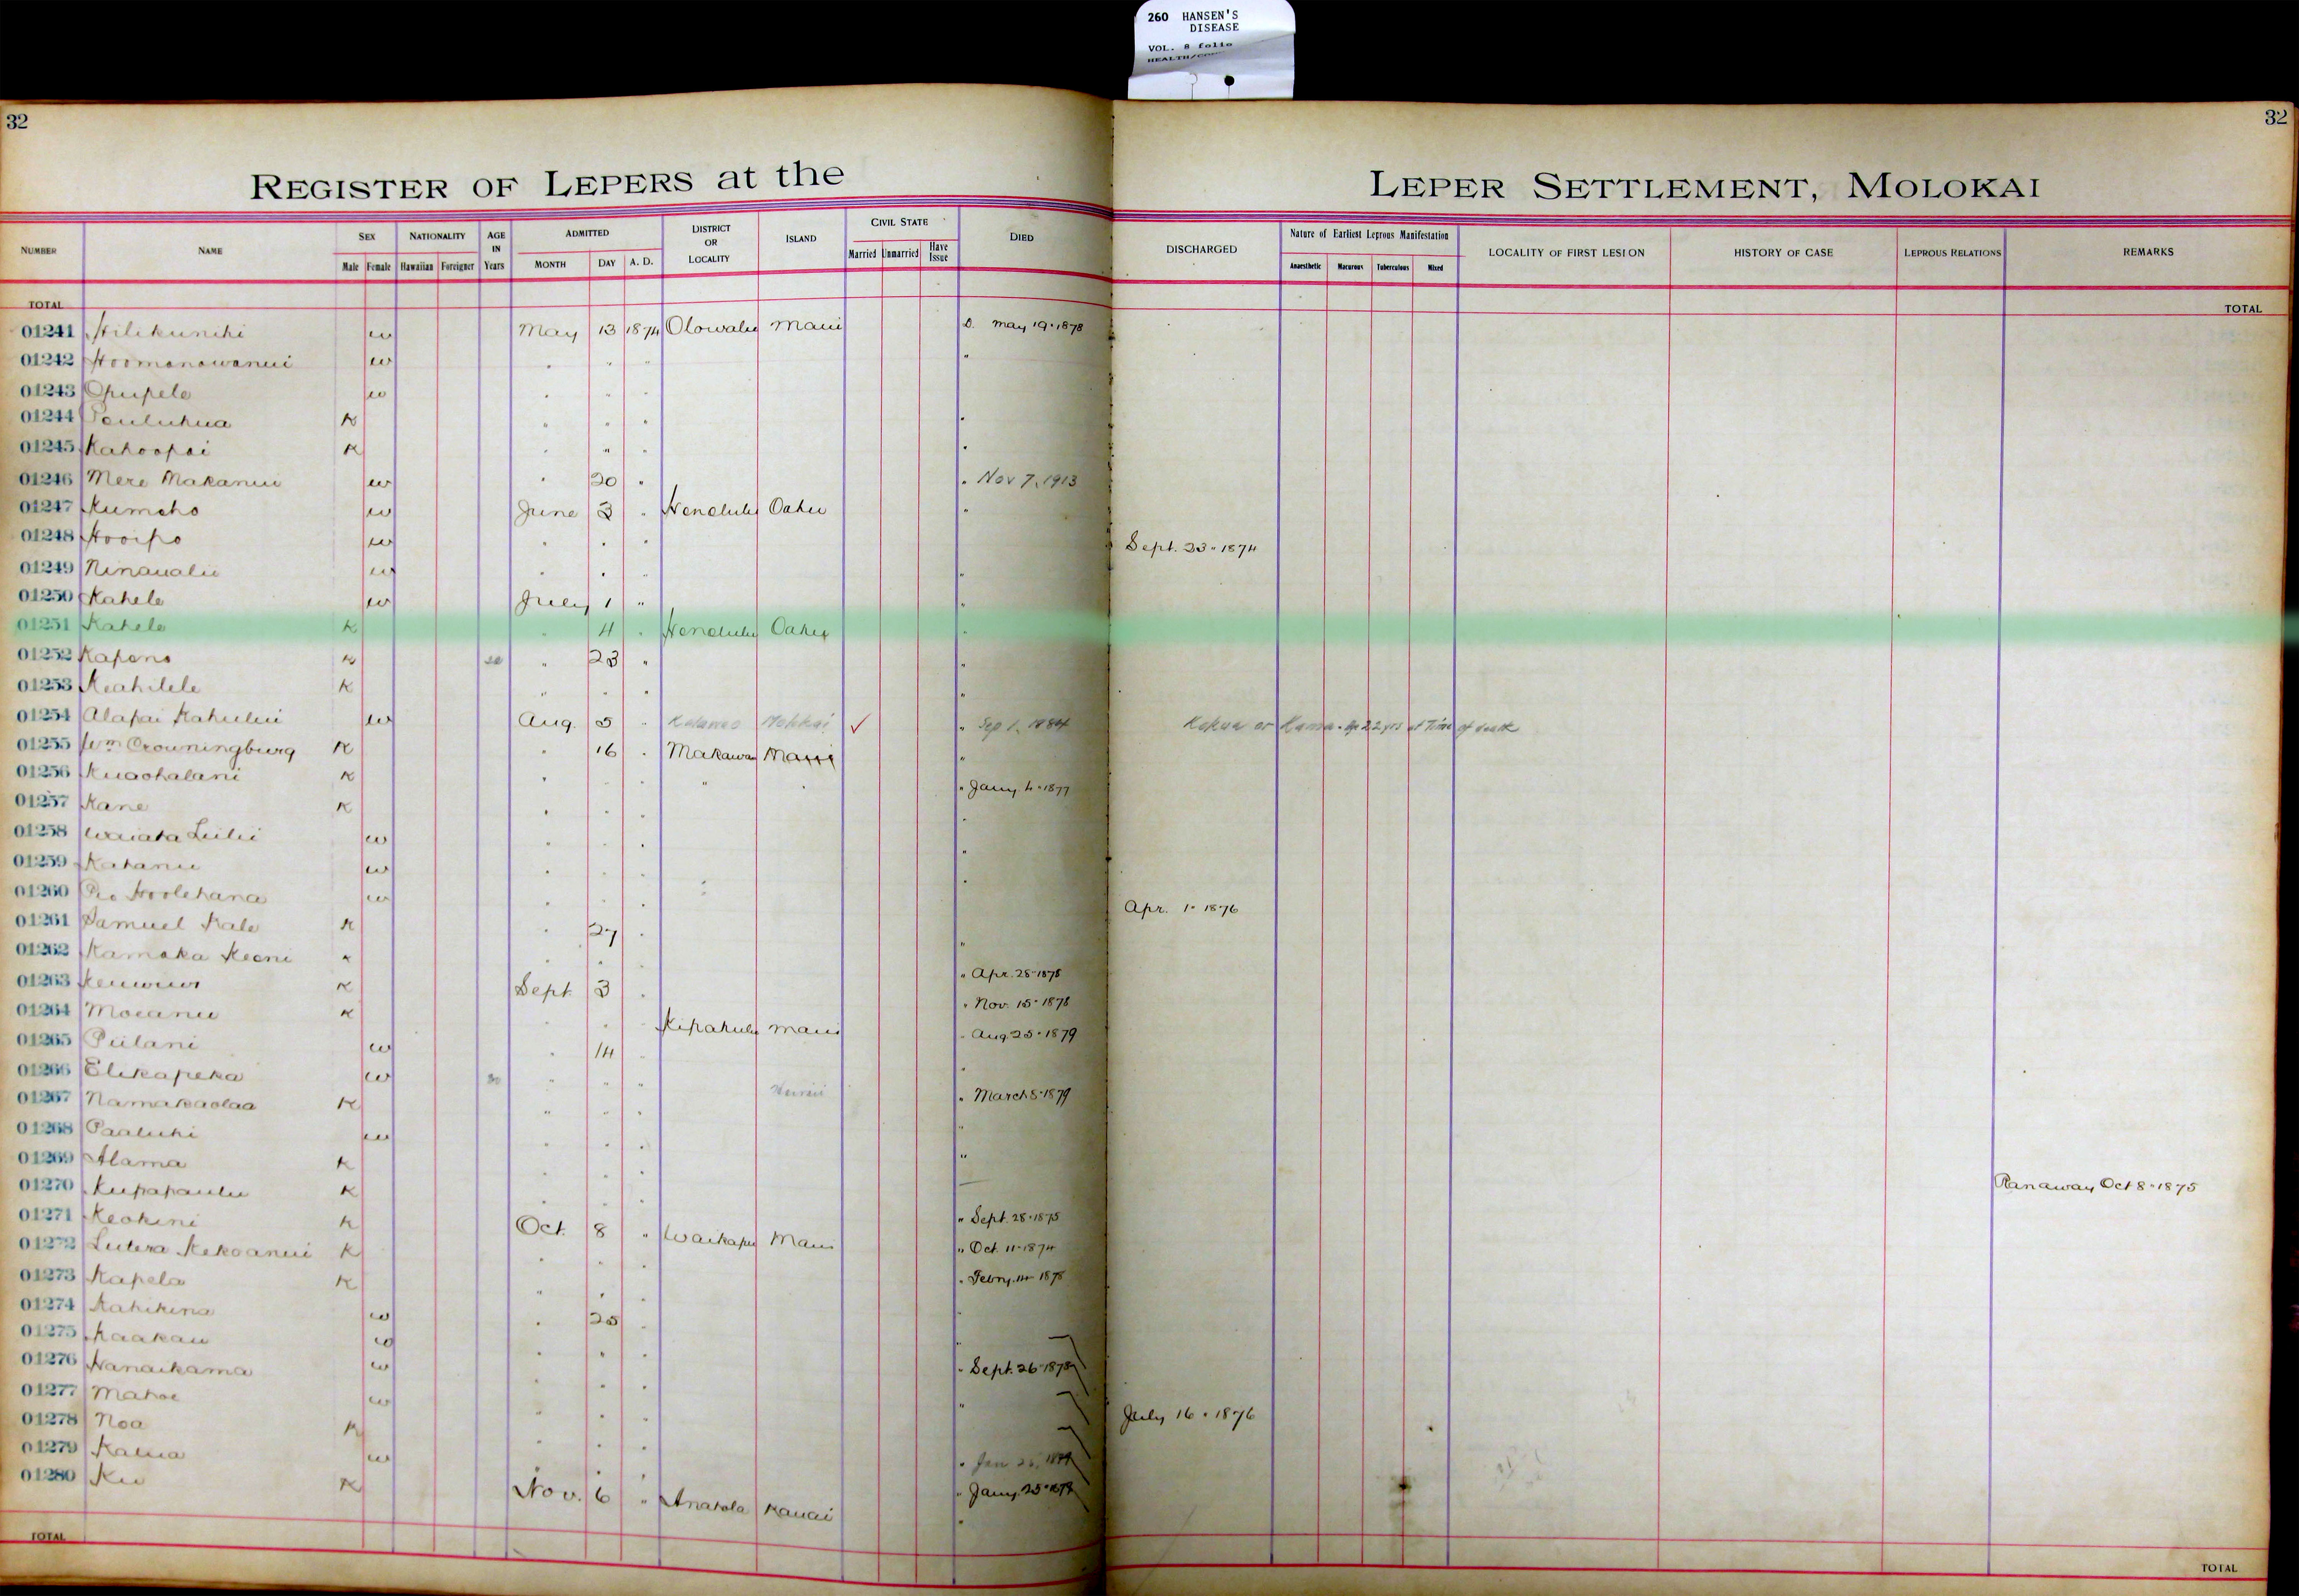 260 HANSEN'S
DISEASE
VOL. 8 folio
32
32
REGISTER OF LEPERS at the LEPER SETTLEMENT, MOLOKAI
NUMBER NAME SEX NATIONALITY AGE IN Years ADMITTED DISTRICT OR LOCALITY ISLAND CIVIL STATE DIED DISCHARGED Nature of Earliest Leprous Manifestation LOCALITY OF FIRST LESION HISTORY OF CASE LEPROUS RELATIONS REMARKS
Male Female Hawaiian Foreigner MONTH DAY A. D. Married Unmarried Have Issue Anaesthetic Macurous Tuberculous Mixed
TOTAL TOTAL
01241 Hilikunihi w May 13 1874 Olowalu Maui D. May 19 · 1878
01242 Hoomanawanui w " " " "
01243 Opupele w " " "
01244 K " " " "
01245 Kahoopai K " " " "
01246 Mere Makanui w " 20 " " Nov 7, 1913
01247 Kumeho w June 3 " Honolulu Oahu "
01248 Hooipo w " " " Sept. 23 · 1874
01249 Ninaualu w " " " "
01250 Kahele w July 1 " "
01251 Kahele K " 4 " Honolulu Oahu "
01252 Kapono K " 23 " "
01253 Keahilele K " " " "
01254 Alapai Kahului w Aug. 5 " Kalawao Molokai ✓ " Sep 1, 1884 Kokua or Kama · Age 22 yrs at Time of death
01255 Wm Crowningburg K " 16 " Makawao Maui "
01256 Kuaohalani K " " " " " " Jany. 4 · 1877
01257 Kane K " " " "
01258 Waiaka Luilii w " " " "
01259 Kahanu w " " " "
01260 Pio Hoolehana w " " " Apr. 1 · 1876
01261 Samuel Kale K " 27 " "
01262 Kamaka Keoni K " " " " Apr. 28 · 1878
01263 K Sept 3 " " Nov. 15 · 1878
01264 Moeanu K " " " Kipahulu Maui " Aug 25 · 1879
01265 Piilani w " 14 " "
01266 Elikapeka w 30 " " " Hawaii " March 8 · 1879
01267 Namakaolaa K " " " "
01268 Paaluhi w " " " "
01269 Alama K " " "
01270 Kupapaulu K " " " Ranaway Oct 8 · 1875
01271 Keokini K Oct. 8 " Waikapu Maui " Sept. 28 · 1875
01272 Lutera Kekoanui K " " " " Oct. 11 · 1874
01273 Kapela K " " " " Febry. 14 1878
01274 Kahikina w " 25 " "
01275 Kaakau w " " " "
01276 Hanaikama w " " " " Sept. 26 · 1878
01277 Mahoe w " " " "
01278 Noa K " " " July 16 · 1876
01279 Kalua w " " " " Jan 26,
01280 Ku K Nov. 6 " Anahola Kauai " Jany. 25 ·
TOTAL TOTAL